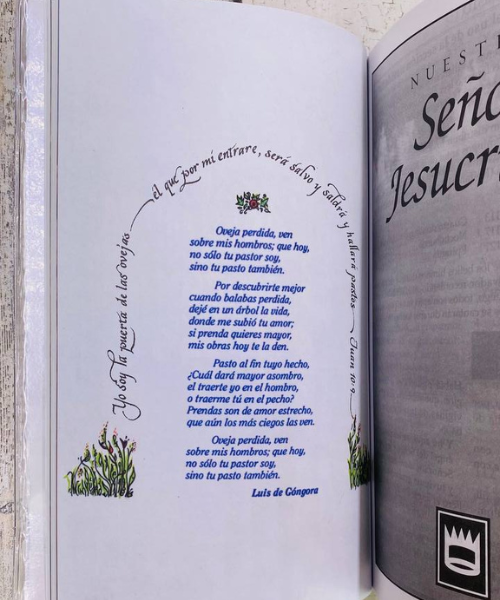 Yo soy la puerta de las ovejas el que por mi entrare, será salvo y saldrá y hallará pastos Juan 10:9
Oveja perdida, ven
sobre mis hombros; que hoy,
no sólo tu pastor soy,
sino tu pasto también.
Por descubrirte mejor
cuando balabas perdida,
dejé en un árbol la vida,
donde me subió tu amor;
si prenda quieres mayor,
mis obras hoy te la den.
Pasto al fin tuyo hecho,
¿Cuál dará mayor asombro,
el traerte yo en el hombro,
o traerme tú en el pecho?
Prendas son de amor estrecho,
que aún los más ciegos las ven.
Oveja perdida, ven
sobre mis hombros; que hoy,
no sólo tu pastor soy,
sino tu pasto también.
Luis de Góngora
NUEST
Seño
Jesucr